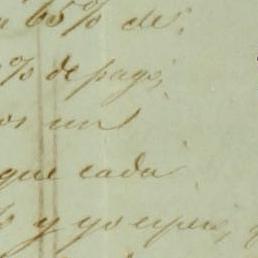 a 65% de
% de pago,
os un
que cada
y yo